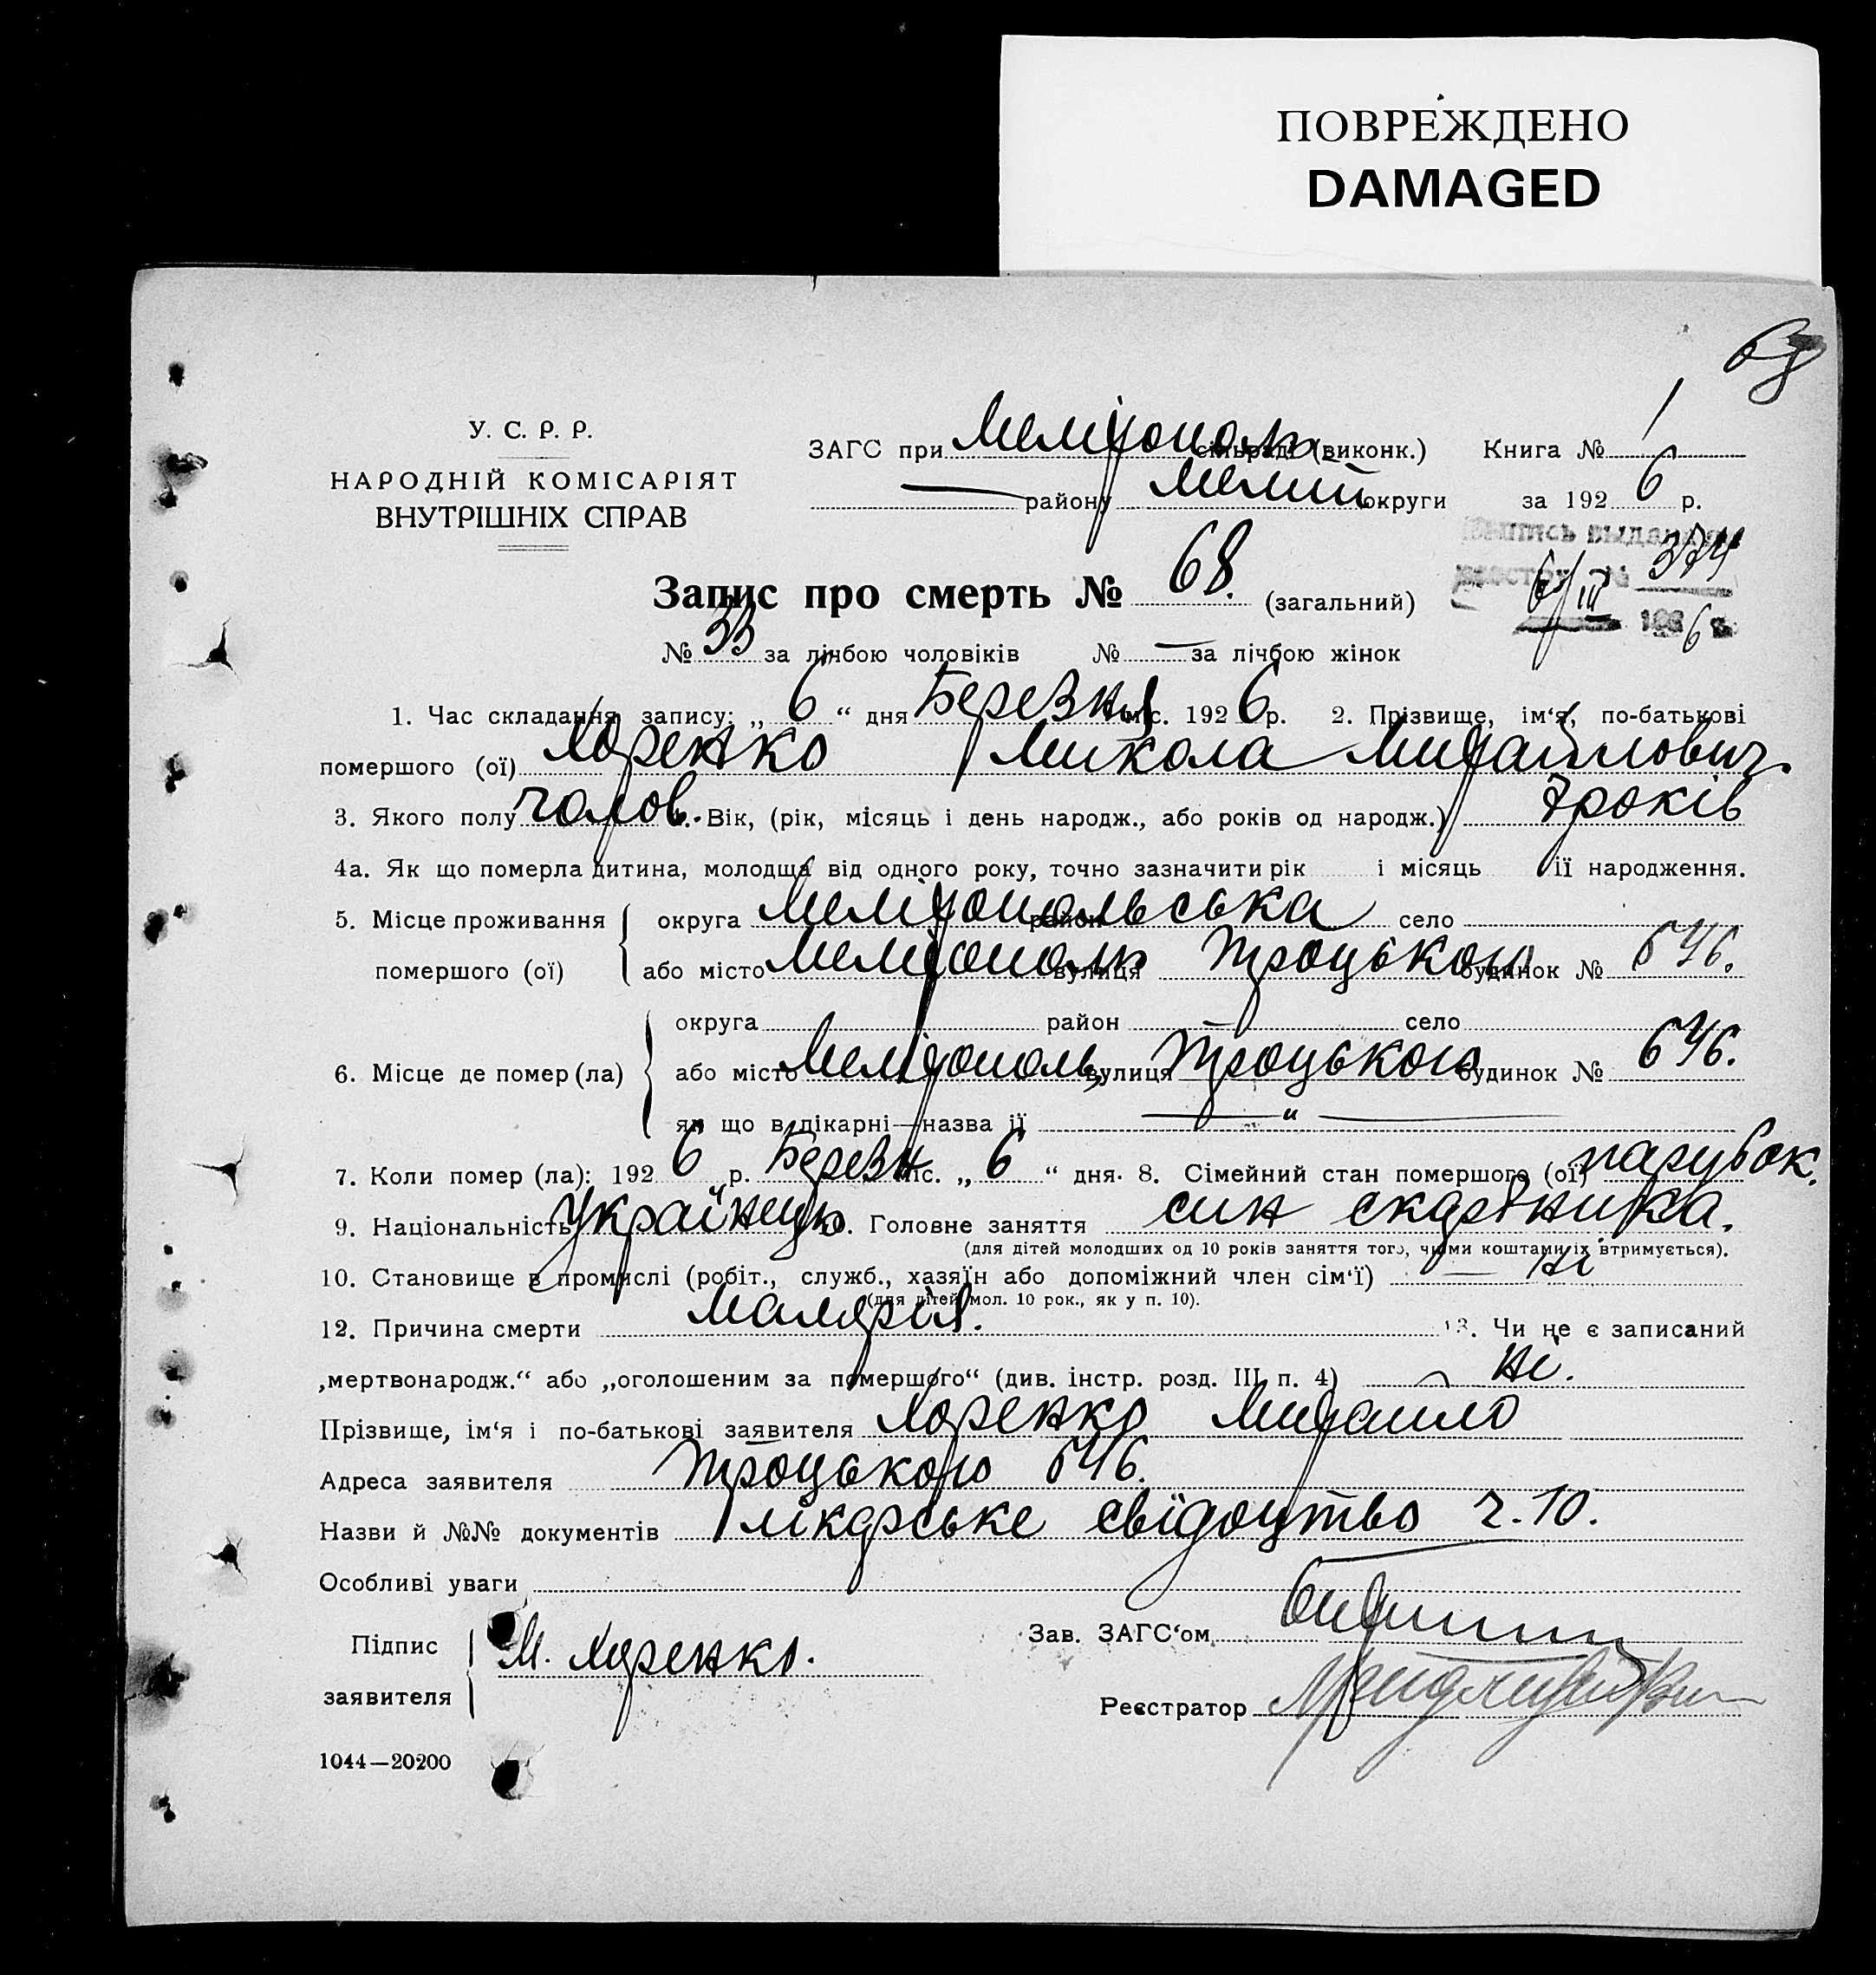 ПОВРЕЖДЕНО
DAMAGED
68
У. С. Р. Р.
НАРОДНІЙ КОМІСАРІЯТ
ВНУТРІШНІХ СПРАВ
ЗАГС при Мелітополь сільраді (виконк.) Книга № 1
району Мелит округи за 192 6 р.
Выпись выдана 374
6/III 192 6 г.
Запис про смерть № 68. (загальний)
№ 33 за лічбою чоловіків № — за лічбою жінок
1. Час складання запису: „ 6 “ дня Березня міс. 192 6 р. 2. Прізвище, ім‘я, по-батькові
помершого (ої) Хоренко Микола Михайлович
3. Якого полу чолов. Вік, (рік, місяць і день народж., або років од народж.) 7 років
4а. Як що померла дитина, молодща від одного року, точно зазначити рік і місяць її народження.
5. Місце проживання округа Мелітопольська район село
помершого (ої) або місто Мелітополь вулиця Троцького будинок № 646.
округа район село
6. Місце де помер (ла) або місто Мелітополь, вулиця Троцького будинок № 646.
як що в лікарні—назва її — „ —
7. Коли помер (ла): 192 6 р. Березн міс. „ 6 “ дня. 8. Сімейний стан помершого (ої) парубок.
9. Національність Українець 10. Головне заняття син
(для дітей молодших од 10 років заняття того, чиїми коштами їх втримується).
10. Становище в промислі (робіт., служб., хазяїн або допоміжний член сім‘ї) — ні
(для дітей мол. 10 рок., як у п. 10).
12. Причина смерти Малярія. 13. Чи не є записаний
„мертвонародж.“ або „оголошеним за помершого“ (див. інстр. розд. III п. 4) ні.
Прізвище, ім‘я і по-батькові заявителя Хоренко Михаило
Адреса заявителя Троцького 646.
Назви й №№ документів лікарське свідоцтво ч. 10.
Особливі уваги
Підпис М. Хоренко. Зав. ЗАГС‘ом
заявителя Реєстратор
1044—20200